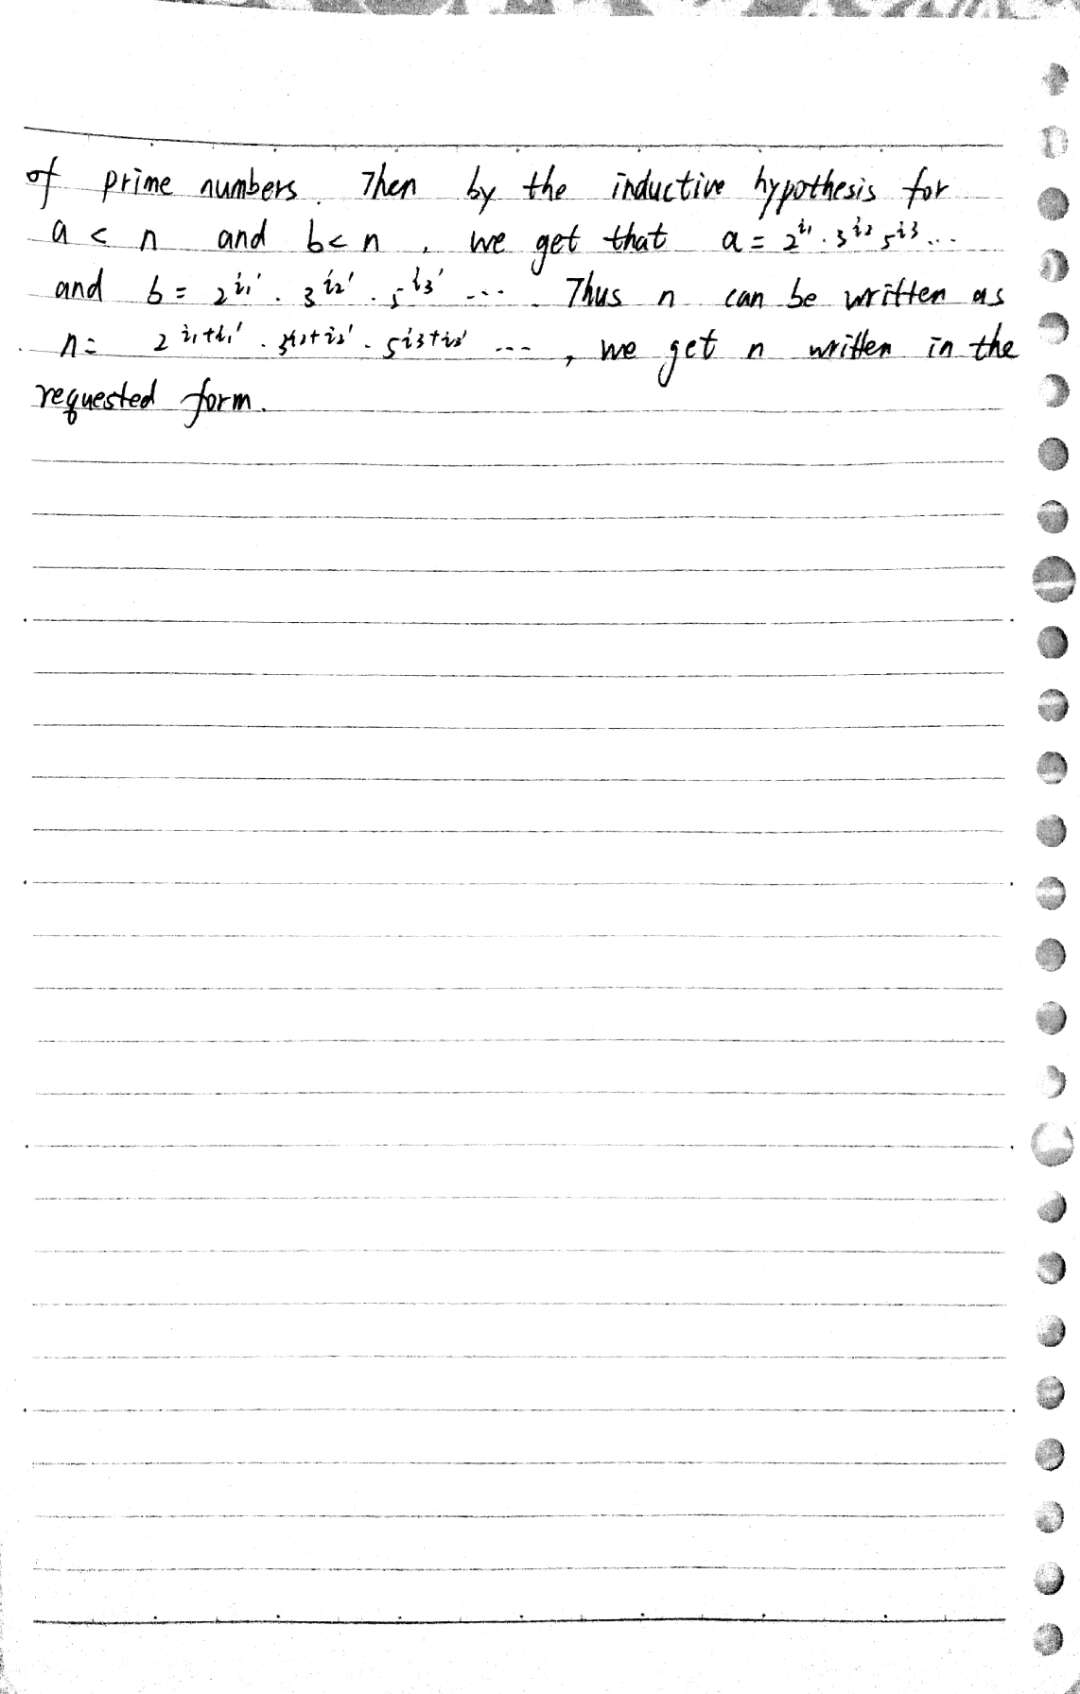 of prime numbers. Then by the inductive hypothesis for
a < n and b < n, we get that a = 2^{i_1} · 3^{i_2} 5^{i_3} ...
and b = 2^{i_1'} · 3^{i_2'} · 5^{i_3'} .... Thus n can be written as
n = 2^{i_1+i_1'} · 3^{i_2+i_2'} · 5^{i_3+i_3'} ..., we get n written in the
requested form.